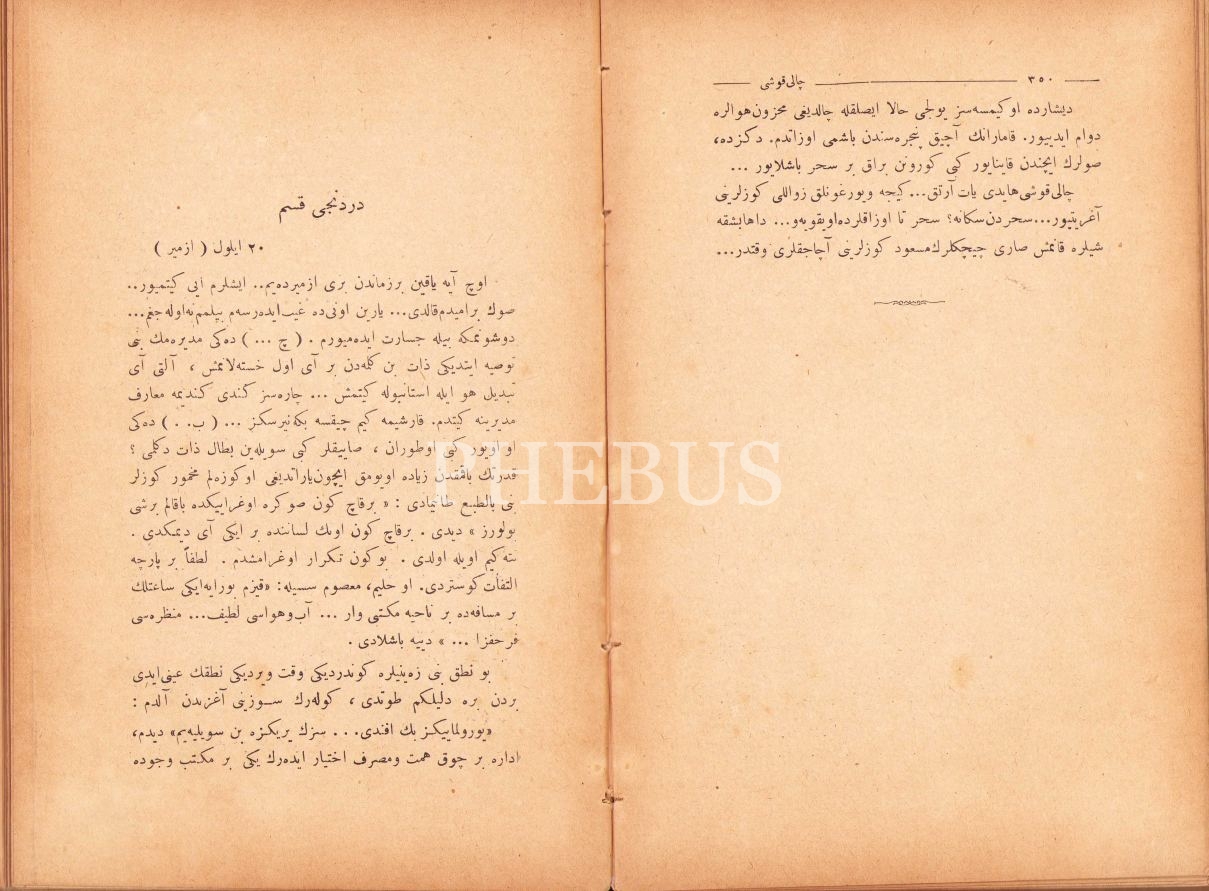 ٣٥٠ چالی‌قوشی
دیشارده او کیمسه‌سز یولجی حالا ایصلقله چالدیغی محزون هوالره
دوام ایدییور. قامارانك آچیق پنجره‌سندن باشمی اوزاتدم. دكزده،
صولرك ایچندن قاینایور كبی كورونن براق بر سحر باشلایور ...
چالی‌قوشی هایدی یات آرتق... كیجه ویورغونلق زواللی كوزلرینی
آغریتیور... سحردن سكانه؟ سحر تا اوزاقلرده اویقویه‌و... داها بشقه
شیلره قانمش صاری چیچكلرك مسعود كوزلرینی آچاجقلری وقتدر...
دردنجی قسم
٢٠ ایلول ( ازمیر )
اوچ آیه یاقین برزماندن بری ازمیرده‌یم.. ایشلرم ایی كیتمیور..
صوك برامیدم قالدی... یارین اونی‌ده غیب ایده‌رسه‌م بیلمم نه اوله‌جغم...
دوشونمكه بیله جسارت ایده‌میورم . ( چ ... ) ده‌كی مدیره‌مك بنی
توصیه ایتدیكی ذات بن كلمه‌دن بر آی اول خسته‌لانمش ، آلتی آی
تبدیل هوا ایله استانبوله كیتمش ... چاره‌سز كندی كندیمه معارف
مدیرینه كیتدم. قارشیمه كیم چیقسه بكه‌نیرسكز ... ( ب. . ) ده‌كی
او اویور كبی اوطوران ، صاییقلار كبی سویله‌ین بطال ذات دكلمی ؟
قدرتك باقمقدن زیاده اویومق ایچون یاراتدیغی او كوزه‌لم مخمور كوزلر
بنی بالطبع طانیمادی : « برقاچ كون صوكره اوغراییكده باقالم برشی
بولورز » دیدی . برقاچ كون اونك لساننده بر ایكی آی دیمكدی .
نته‌كیم اویله اولدی . بوكون تكرار اوغرامشدم . لطفاً بر پارچه
التفات كوستردی. او حلیم، معصوم سسیله: «قیزم بورایه ایكی ساعتلك
بر مسافه‌ده بر ناحیه مكتبی وار ... آب‌وهواسی لطیف... منظره‌سی
فرحفزا ... » دییه باشلادی .
بو نطق بنی زه‌ینیلره كوندردیكی وقت ویردیكی نطقك عینی‌ایدی
بردن بره دلیلكم طوتدی ، كوله‌رك سوزینی آغزندن آلدم :
«یورولماییكز بك افندی... سزك یریكزه بن سویلیه‌یم» دیدم،
اداره بر چوق همت ومصرف اختیار ایده‌رك یكی بر مكتب وجوده
PHEBUS